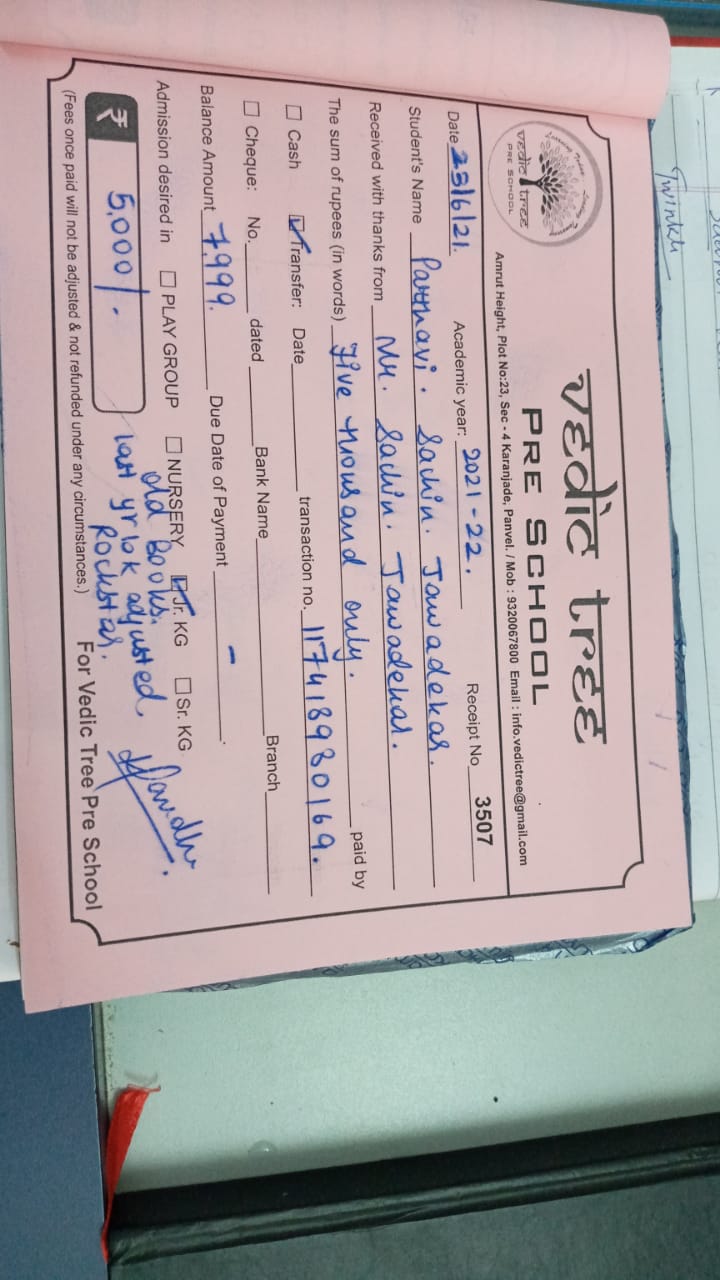 Twinkle
Learning Today... Leading Tomorrow
vedic tree
PRE SCHOOL
vedic tree
PRE SCHOOL
Amrut Height, Plot No:23, Sec - 4 Karanjade, Panvel. / Mob : 9320067800 Email : info.vedictree@gmail.com
Date 23/6/21. Academic year: 2021-22. Receipt No 3507
Student's Name Parnavi. Sachin. Jawadekar.
Received with thanks from Mr. Sachin. Jawadekar.
The sum of rupees (in words) Five thousand only. paid by
☐ Cash ☑ Transfer: Date transaction no. 117418980169.
☐ Cheque: No. dated Bank Name Branch
Balance Amount 7,999. Due Date of Payment -
Admission desired in ☐ PLAY GROUP ☐ NURSERY ☑ Jr. KG ☐ Sr. KG
old Books.
₹ 5,000/. last yr 10k adjusted
Rockstar.
(Fees once paid will not be adjusted & not refunded under any circumstances.) For Vedic Tree Pre School